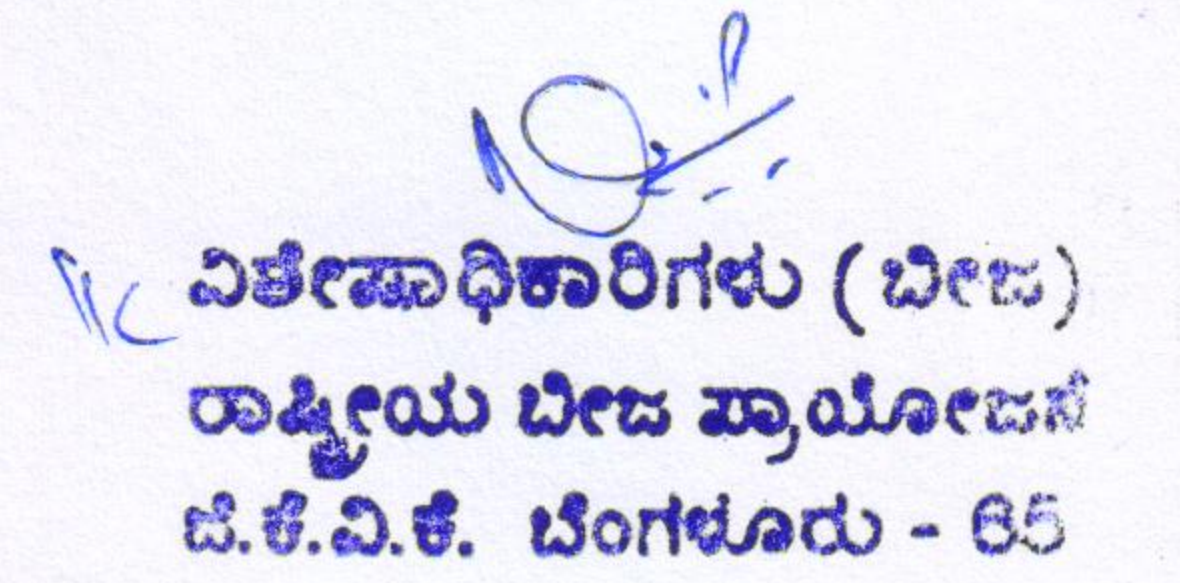 ವಿಶೇಷಾಧಿಕಾರಿಗಳು ( ಬೀಜ )
ರಾಷ್ಟ್ರೀಯ ಬೀಜ ಪ್ರಾಯೋಜನೆ
ಜಿ.ಕೆ.ವಿ.ಕೆ. ಬೆಂಗಳೂರು - 65